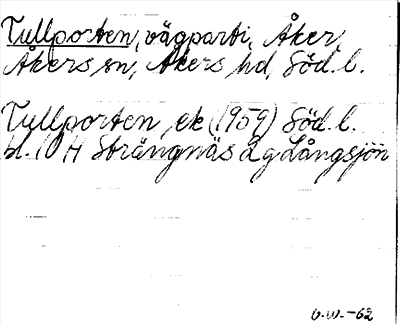 Tullporten, vägparti, Åker
Åkers sn, Åkers hd, Söd. l.
Tullporten, ek (1959) Söd. l.
bl. 10 H Strängnäs 2 g Långsjön
G.W.-62